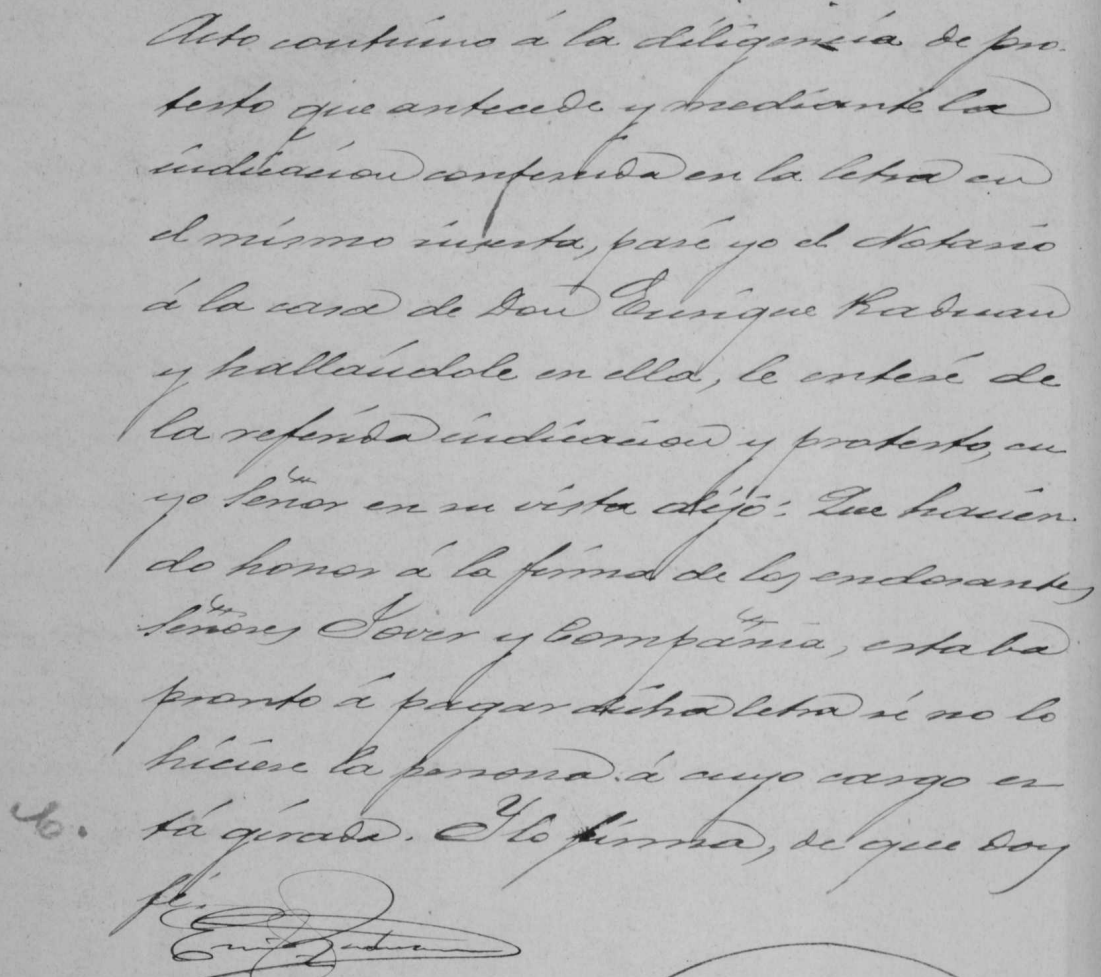 Acto contínuo á la diligencia de pro-
testo que antecede y mediante la
indicacion contenida en la letra en
el mismo inserta, pasé yo el Notario
á la casa de Don Enrique Raduan
y hallándole en ella, le enteré de
la referida indicacion y protesto, cu
yo Señor en su vista dijo: Que hacien-
do honor á la firma de los endosantes
Señores Jover y Compañia, estaba
pronto á pagar dicha letra si no lo
hiciese la persona á cuyo cargo es
tá girada. Y lo firma, de que doy
fé.